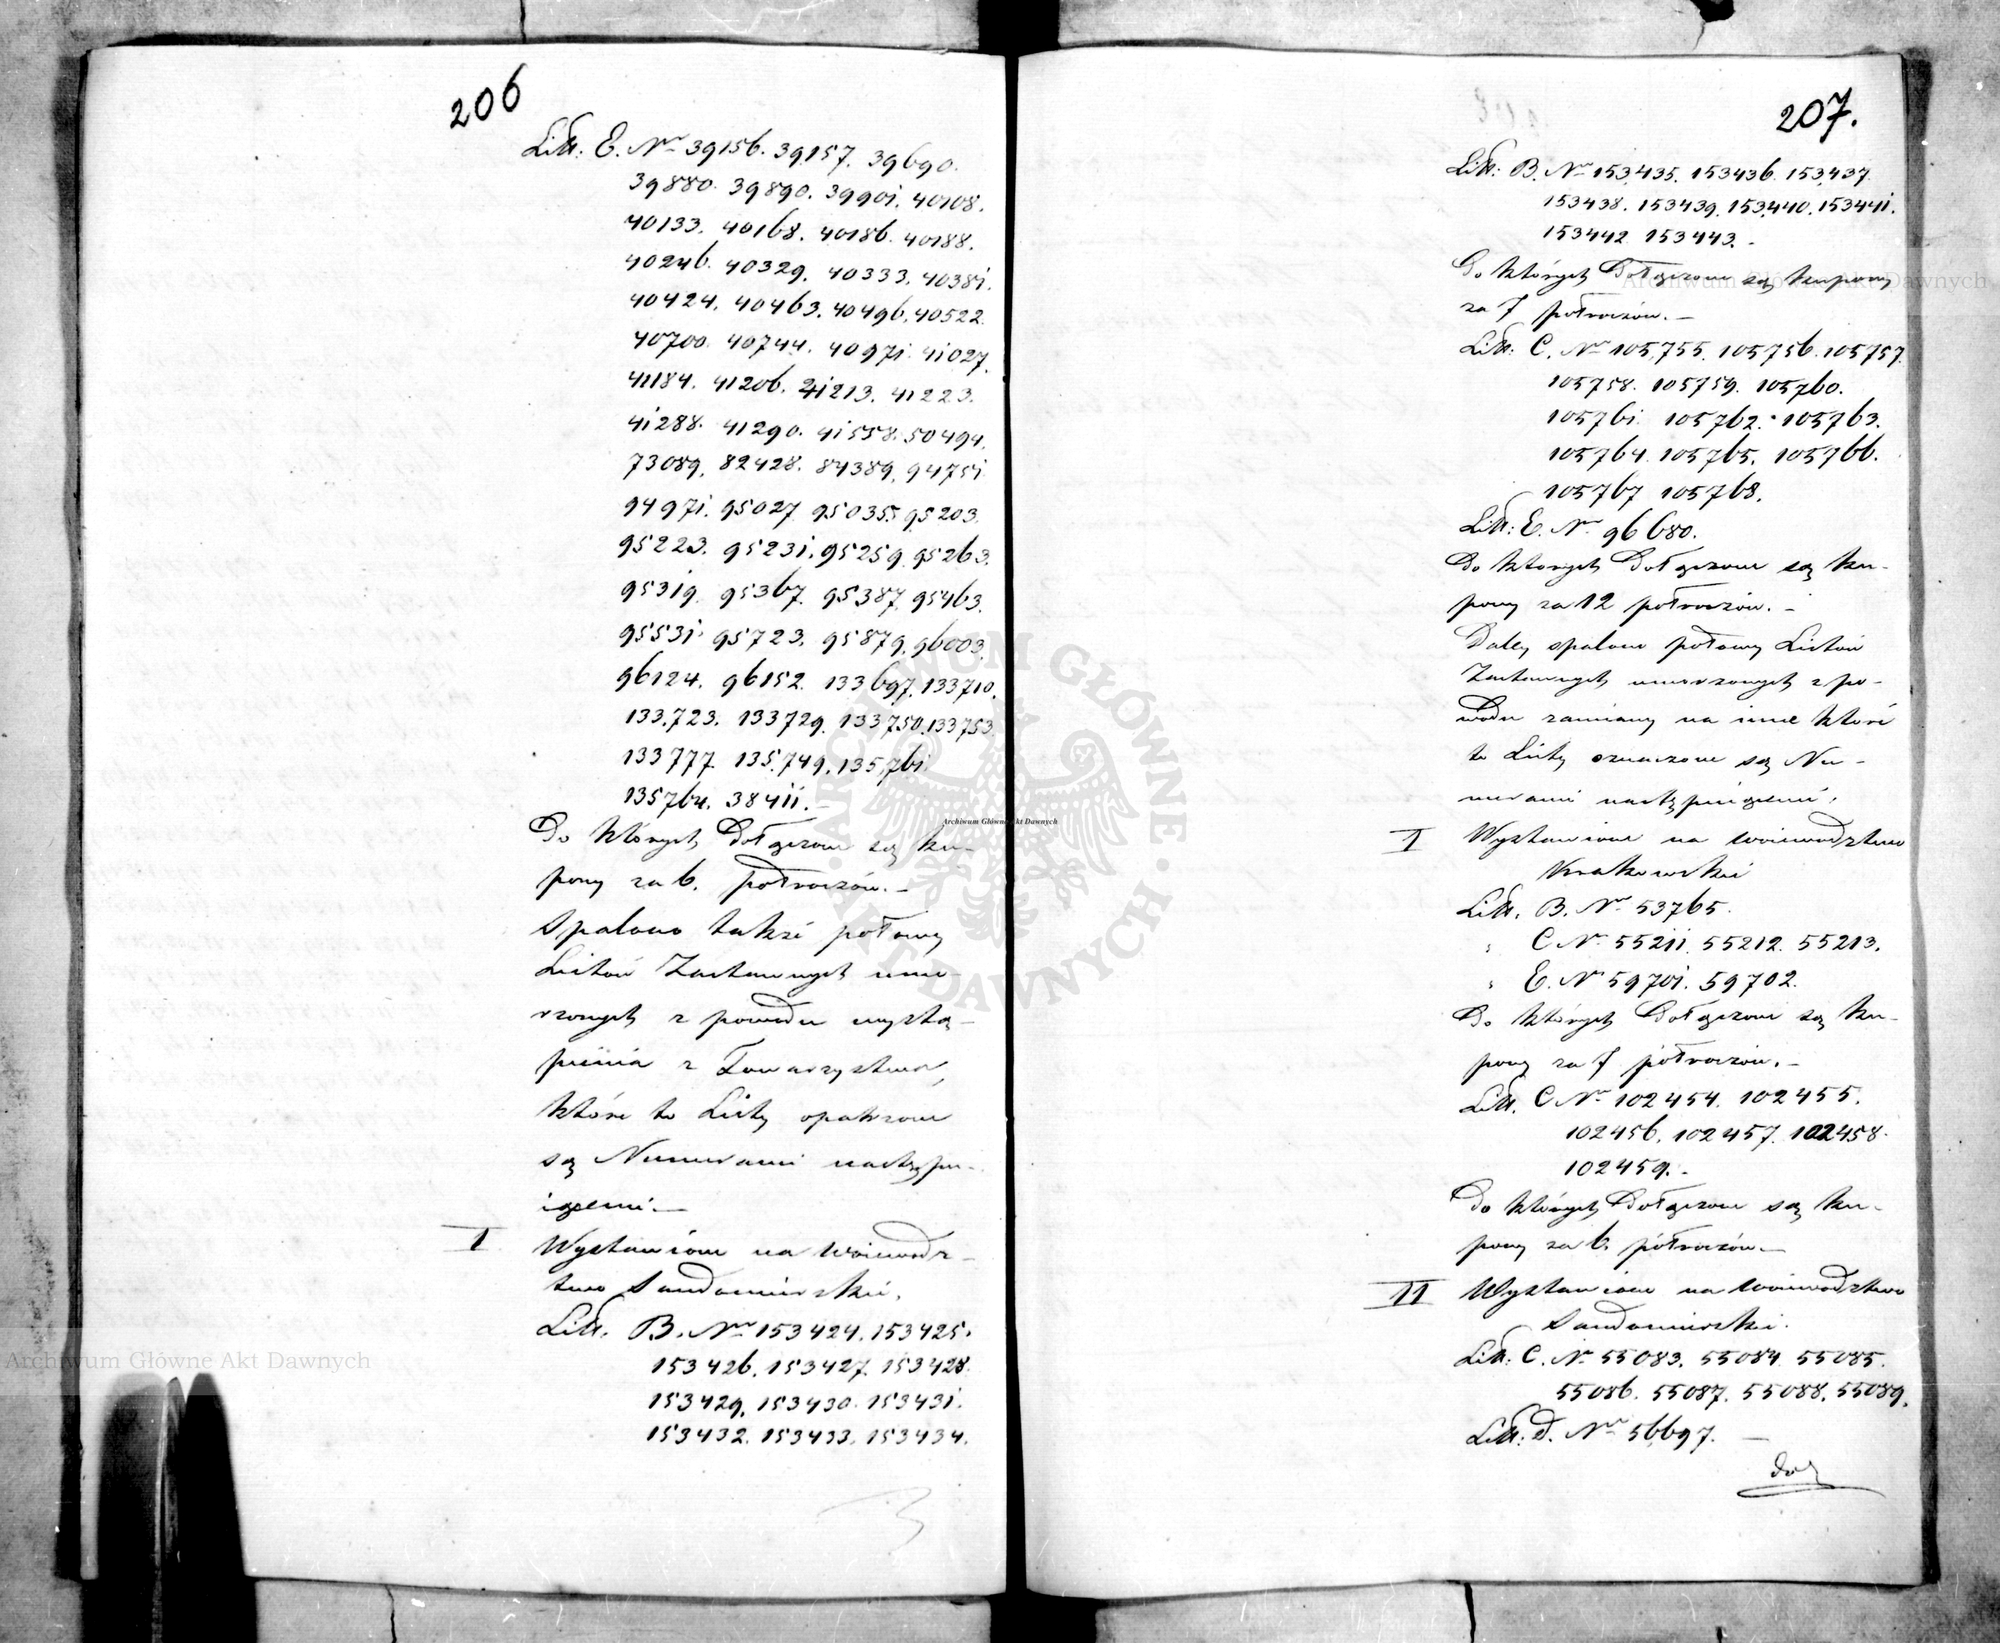 206
Litt: E. Nr 39156. 39157. 39690.
39880. 39890. 39901. 40108.
40133. 40168. 40186. 40188.
40246. 40329. 40333. 40381.
40424. 40463. 40496. 40522.
40700. 40744. 40971. 41027.
41184. 41206. 41213. 41223.
41288. 41290. 41558. 50494.
73089. 82428. 84389. 94751.
94971. 95027. 95035. 95203.
95223. 95231. 95259. 95263.
95319. 95367. 95387. 95463.
95531. 95723. 95879. 96003.
96124. 96152. 133697. 133710.
133,723. 133729. 133750. 133753.
133777. 135,749. 135,761.
135764. 38411. –
Do których dołączone są ku-
pony za 6. półroczów. –
Spalono także połowy
Listów Zastawnych umo-
rzonych z powodu wystą-
pienia z Towarzystwa,
które to Listy opatrzone
są Numerami następu-
iącemi. –
I Wystawione na Woiewodz-
two Sandomirskie.
Litt. B. Nr 153424. 153425.
153426. 153427. 153428.
153429. 153430. 153431.
153432. 153433. 153434.
207.
Litt: B. Nr 153,435. 153436. 153,437.
153438. 153439. 153,440. 153441.
153442. 153443. –
Do których dołączone są kupony
za 7 półroczów. –
Litt: C. Nr 105,755. 105756. 105757.
105758. 105759. 105760.
105761. 105762. 105763.
105764. 105765. 105766.
105767. 105768.
Litt: E. Nr 96680.
Do których dołączone są ku-
pony za 12 półroczów. –
Daley spalone połowy Listów
Zastawnych umorzonych z po-
wodu zamiany na inne które
to Listy oznaczone są Nu-
merami następuiącemi.
I Wystawione na Woiewodztwo
Krakowskie
Litt. B. Nr 53765.
" C Nr 55211. 55212. 55213.
" E. Nr 59701. 59702.
Do których dołączone są ku-
pony za 7 półroczów. –
Litt. C Nr 102454. 102455.
102456. 102457. 102458.
102459. –
Do których dołączone są ku-
pony za 6. półroczów. –
II Wystawione na Woiewodztwo
Sandomirskie.
Litt: C. Nr 55083. 55084. 55085.
55086. 55087. 55088. 55089.
Litt: D. Nr 56697. –
Archiwum Główne Akt Dawnych
Archiwum Główne Akt Dawnych
Archiwum Główne Akt Dawnych
ARCHIWUM GŁÓWNE · AKT DAWNYCH ·